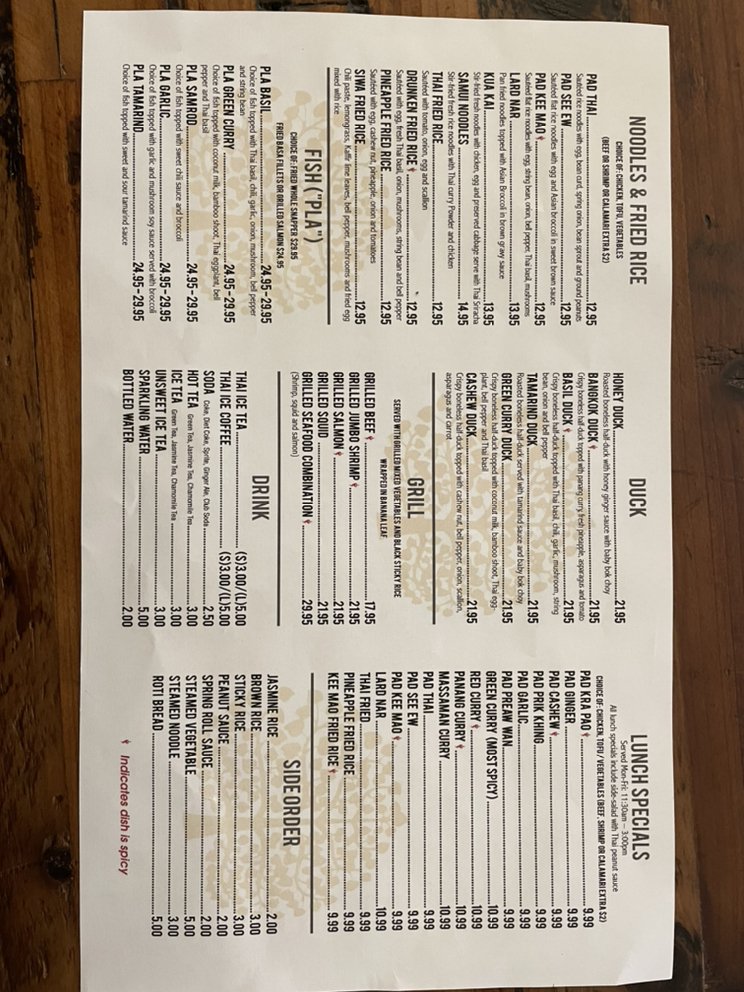 NOODLES & FRIED RICE
CHOICE OF: CHICKEN, TOFU, VEGETABLES
(BEEF OR SHRIMP OR CALAMARI EXTRA $2)
PAD THAI 12.95
Sautéed rice noodles with egg, bean curd, spring onion, bean sprout and ground peanuts
PAD SEE EW 12.95
Sautéed flat rice noodles with egg and Asian broccoli in sweet brown sauce
PAD KEE MAO 12.95
Sautéed flat rice noodles with egg, string bean, onion, bell pepper, Thai basil, mushrooms
LARD NAR 13.95
Pan fried noodles topped with Asian Broccoli in brown gravy sauce
KUA KAI 13.95
Stir-fried fresh noodles with chicken, egg and preserved cabbage serve with Thai Sriracha
SAMUI NOODLES 14.95
Stir-fried fresh rice noodles with Thai curry Powder and chicken
THAI FRIED RICE 12.95
Sautéed with tomato, onion, egg and scallion
DRUNKEN FRIED RICE 12.95
Sautéed with egg, fresh Thai basil, onion, mushrooms, string bean and bell pepper
PINEAPPLE FRIED RICE 12.95
Sautéed with egg, cashew nut, pineapple, onion and tomatoes
SIWA FRIED RICE 12.95
Chili paste, lemongrass, kaffir lime leaves, bell pepper, mushrooms and fried egg
mixed with rice
FISH ("PLA")
CHOICE OF: FRIED WHOLE SNAPPER $29.95
FRIED BASA FILLETS OR GRILLED SALMON $24.95
PLA BASIL 24.95-29.95
Choice of fish topped with Thai basil, chili, garlic, onion, mushroom, bell pepper
and string bean
PLA GREEN CURRY 24.95-29.95
Choice of fish topped with coconut milk, bamboo shoot, Thai eggplant, bell
pepper and Thai basil
PLA SAMROD 24.95-29.95
Choice of fish topped with sweet chili sauce and broccoli
PLA GARLIC 24.95-29.95
Choice of fish topped with garlic and mushroom soy sauce served with broccoli
PLA TAMARIND 24.95-29.95
Choice of fish topped with sweet and sour tamarind sauce
DUCK
HONEY DUCK 21.95
Roasted boneless half-duck with honey ginger sauce with baby bok choy
BANGKOK DUCK 21.95
Crispy boneless half-duck topped with panang curry, fresh pineapple, asparagus and tomato
BASIL DUCK 21.95
Crispy boneless half-duck topped with Thai basil, chili, garlic, mushroom, string
bean, onion and bell pepper
TAMARIND DUCK 21.95
Roasted boneless half-duck served with tamarind sauce and baby bok choy
GREEN CURRY DUCK 21.95
Crispy boneless half-duck topped with coconut milk, bamboo shoot, Thai egg-
plant, bell pepper and Thai basil
CASHEW DUCK 21.95
Crispy boneless half-duck topped with cashew nut, bell pepper, onion, scallion,
asparagus and carrot
GRILL
SERVED WITH GRILLED MIXED VEGETABLES AND BLACK STICKY RICE
WRAPPED IN BANANA LEAF
GRILLED BEEF 17.95
GRILLED JUMBO SHRIMP 21.95
GRILLED SALMON 21.95
GRILLED SQUID 21.95
GRILLED SEAFOOD COMBINATION 29.95
(Shrimp, squid and salmon)
DRINK
THAI ICE TEA (S)3.00/(L)5.00
THAI ICE COFFEE (S)3.00/(L)5.00
SODA Coke, Diet Coke, Sprite, Ginger Ale, Club Soda 2.50
HOT TEA Green Tea, Jasmine Tea, Chamomile Tea 3.00
ICE TEA Green Tea, Jasmine Tea, Chamomile Tea 3.00
UNSWEET ICE TEA 3.00
SPARKLING WATER 5.00
BOTTLED WATER 2.00
LUNCH SPECIALS
Served Mon-Fri: 11:30am – 3:00pm
All lunch specials include side-salad with Thai peanut sauce
CHOICE OF: CHICKEN, TOFU/ VEGETABLES (BEEF, SHRIMP OR CALAMARI EXTRA $2)
PAD KRA PAO 9.99
PAD GINGER 9.99
PAD CASHEW 9.99
PAD PRIK KHING 9.99
PAD GARLIC 9.99
PAD PREAW WAN 9.99
GREEN CURRY (MOST SPICY) 10.99
RED CURRY 10.99
PANANG CURRY 10.99
MASSAMAN CURRY 10.99
PAD THAI 9.99
PAD SEE EW 9.99
PAD KEE MAO 9.99
LARD NAR 10.99
THAI FRIED 9.99
PINEAPPLE FRIED RICE 9.99
KEE MAO FRIED RICE 9.99
SIDE ORDER
JASMINE RICE 2.00
BROWN RICE 3.00
STICKY RICE 3.00
PEANUT SAUCE 2.00
SPRING ROLL SAUCE 2.00
STEAMED VEGETABLE 5.00
STEAMED NOODLE 3.00
ROTI BREAD 5.00
Indicates dish is spicy